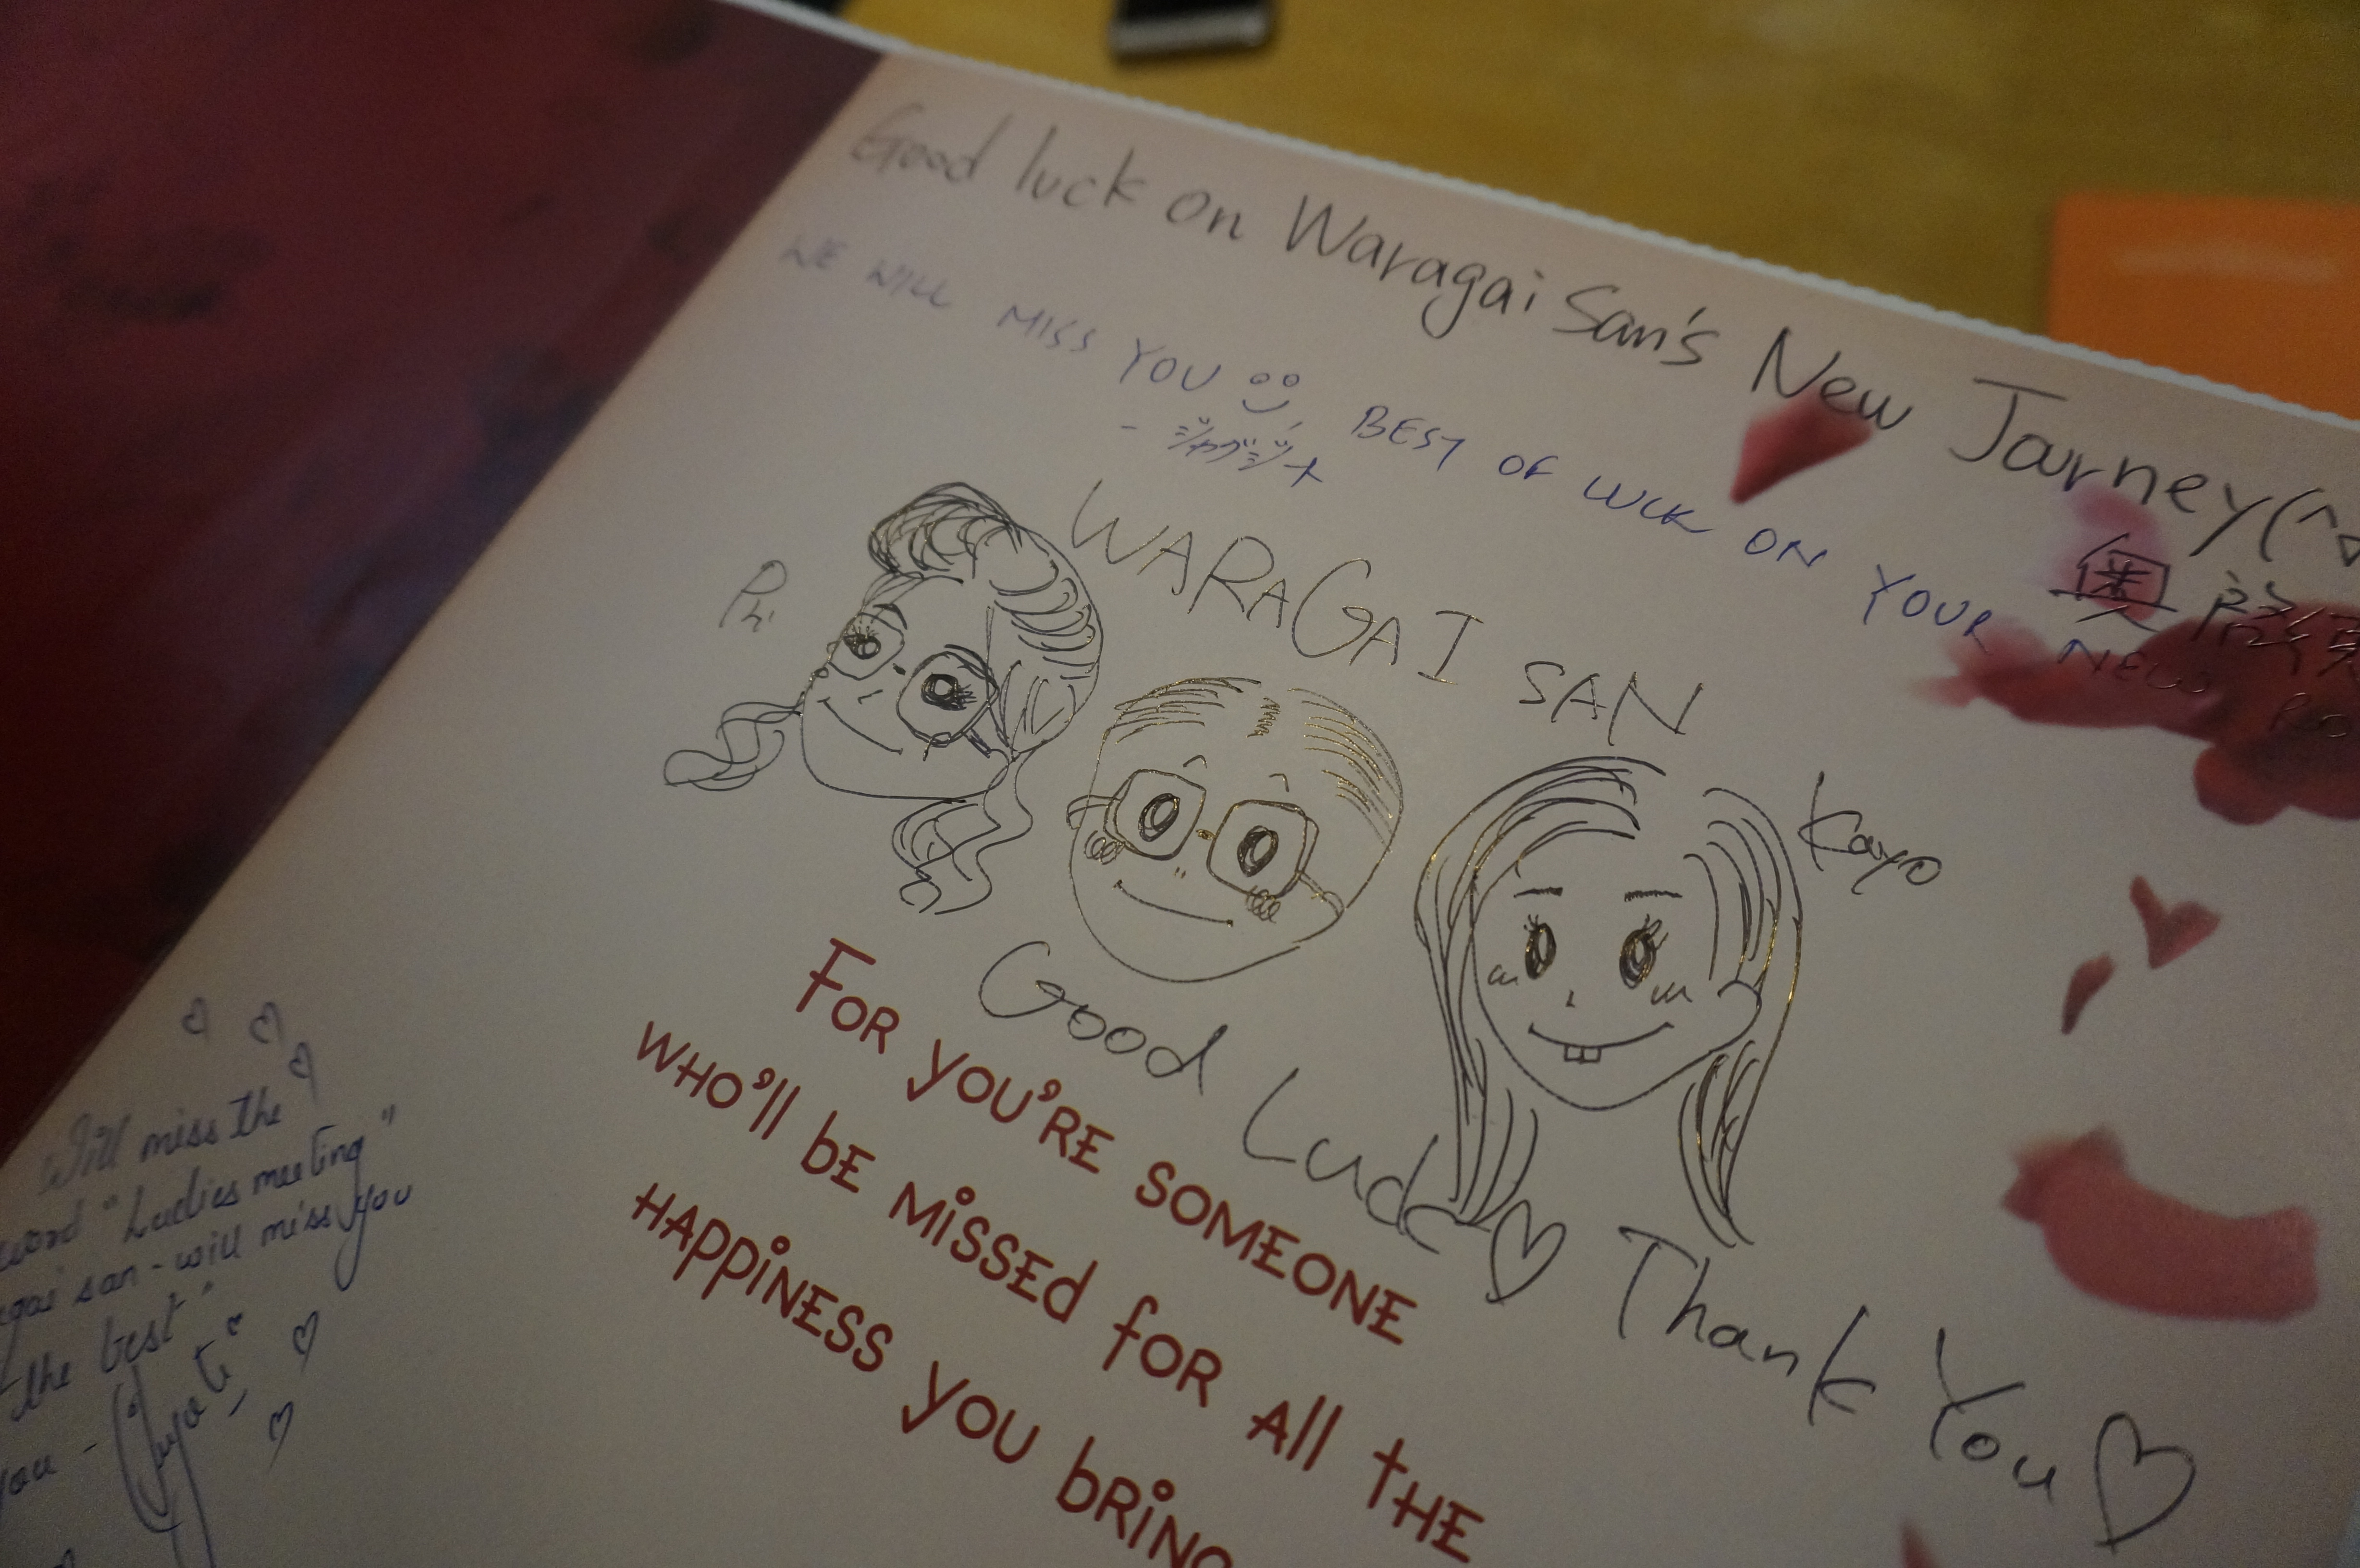 Good luck on Waragai San's New Journey(^
WE WILL MISS YOU BEST OF LUCK ON YOUR NEW RO
- ジャグジット
奥
WARAGAI SAN
Phi
Kayo
Good Luck♡ Thank You♡
FOR YOU'RE SOMEONE
WHO'll bE MiSSEd fOR All THE
HAPPiNESS YOU bRING
Will miss the
word "Ladies meeting"
gai san - will miss you
the best"
you -